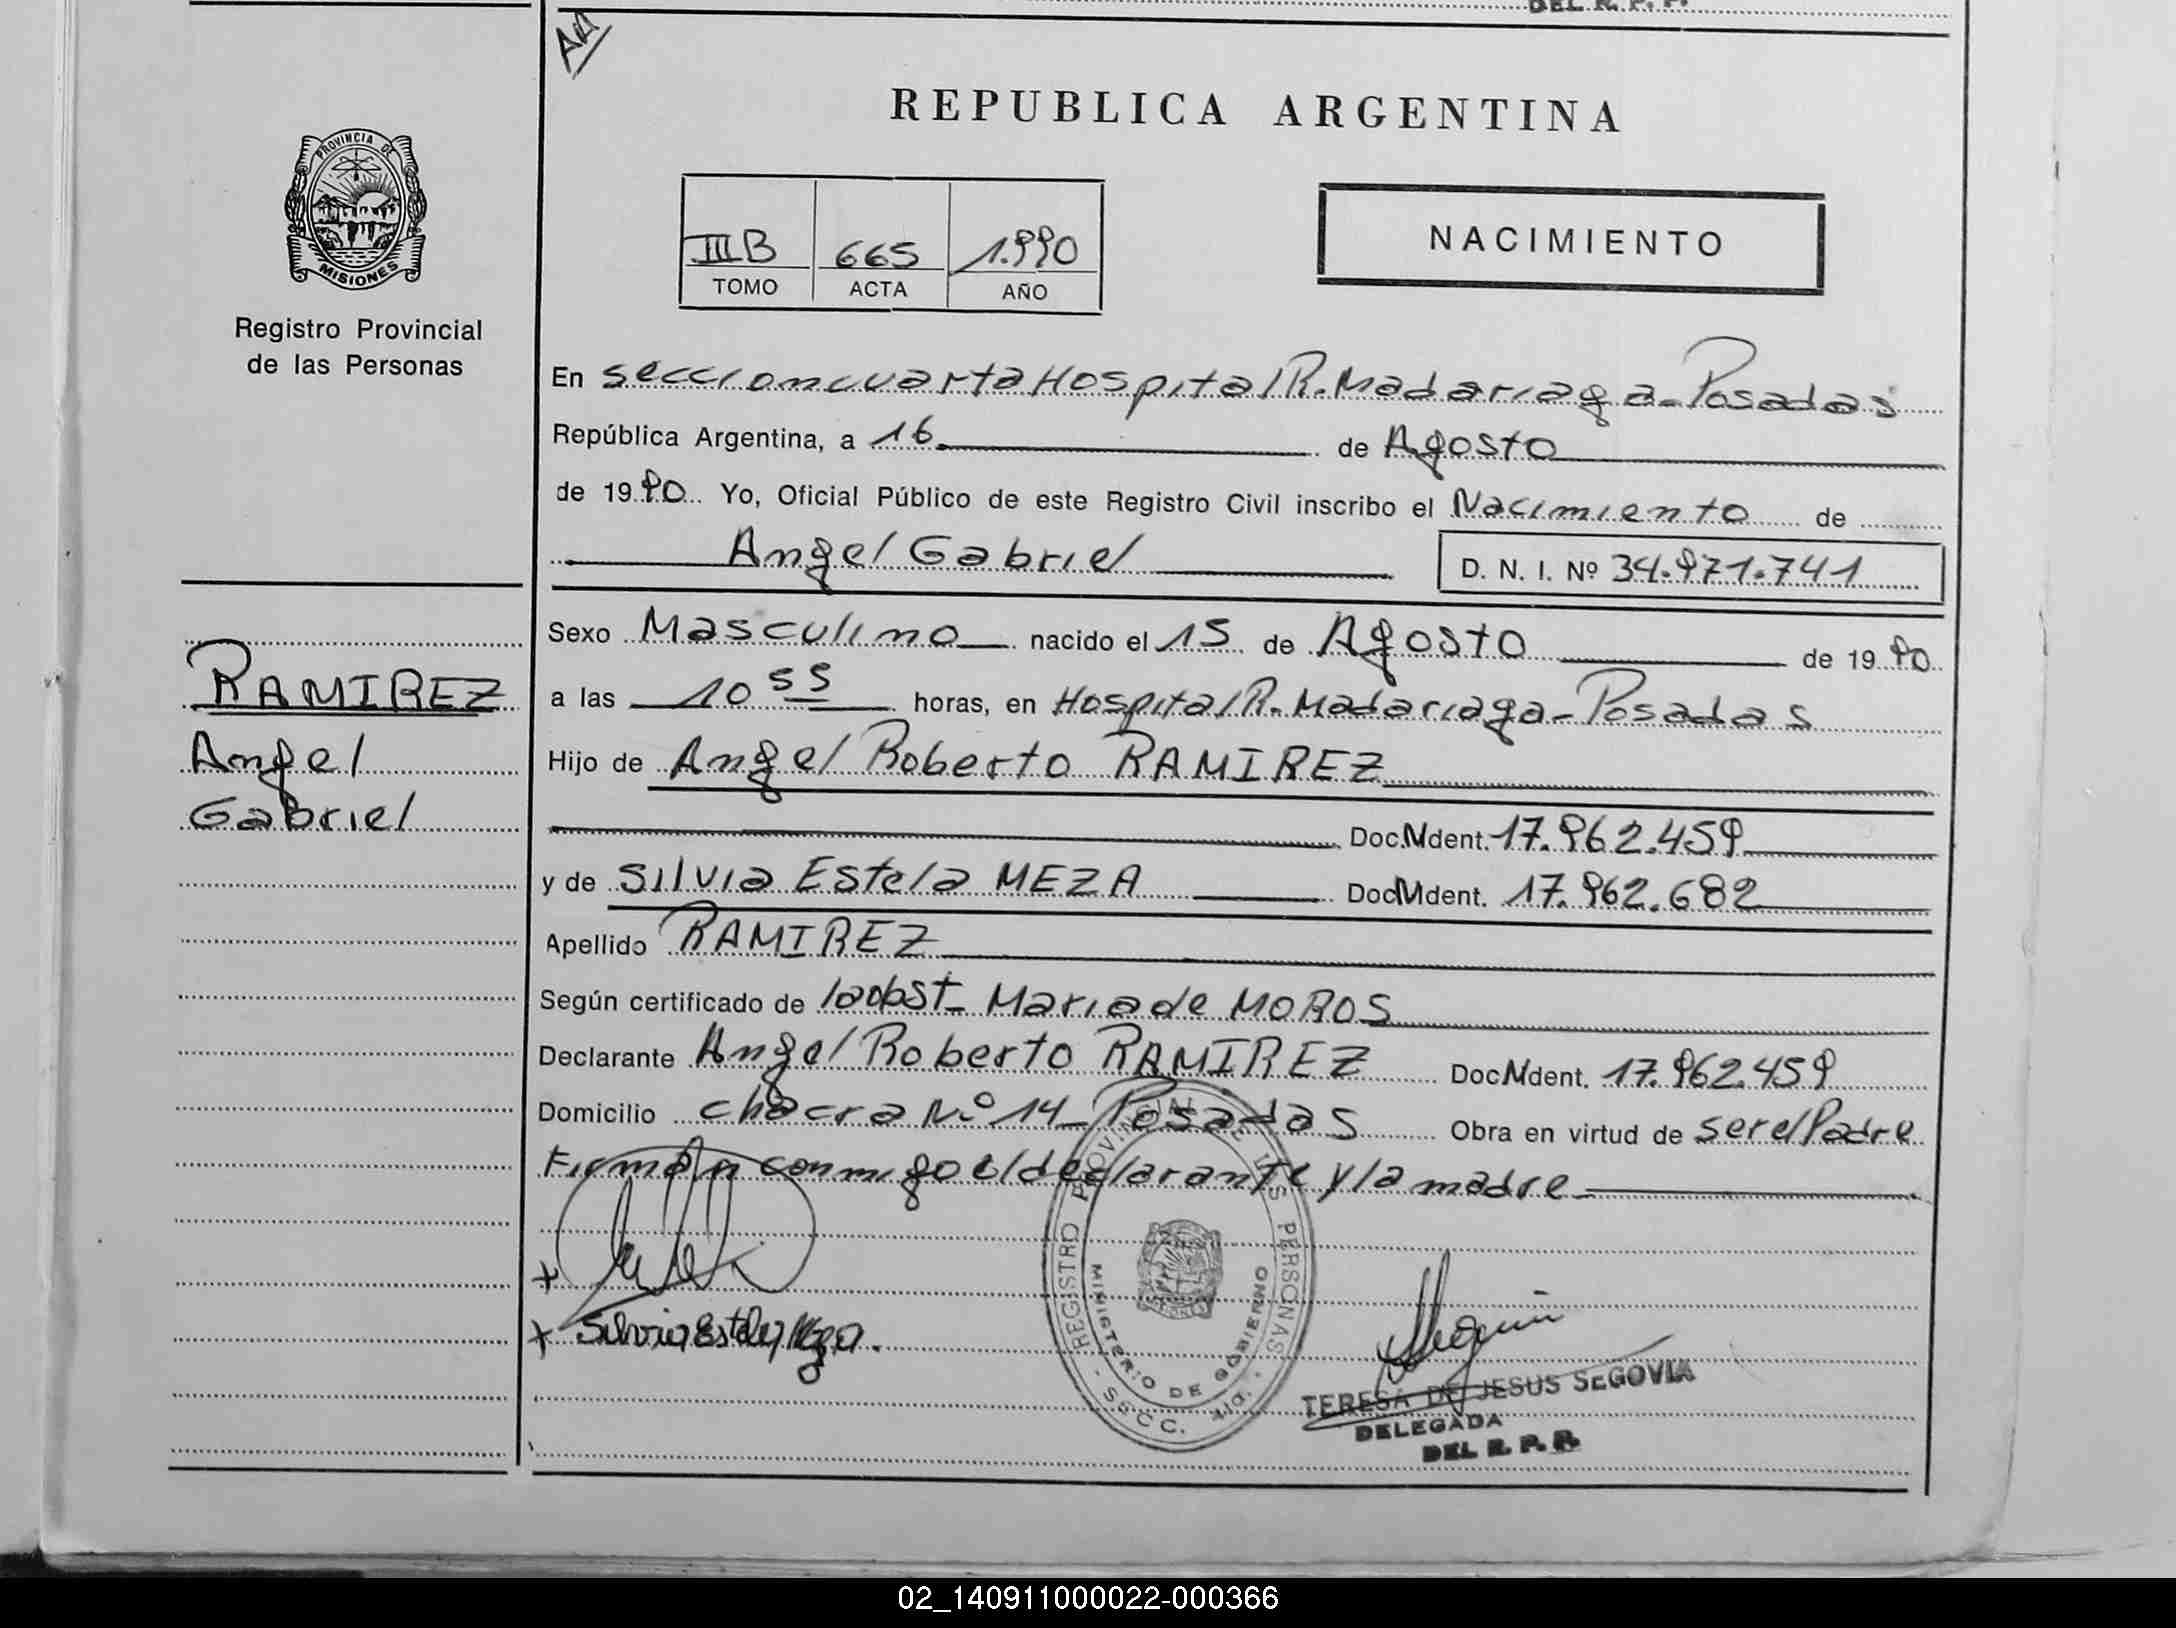 DEL R. P. P.
AA
REPUBLICA ARGENTINA
PROVINCIA DE
MISIONES
Registro Provincial
de las Personas
III B 665 1.990
TOMO ACTA AÑO
NACIMIENTO
En seccion cuarta Hospital R. Madariaga - Posadas
República Argentina, a 16 de Agosto
de 1990 Yo, Oficial Público de este Registro Civil inscribo el Nacimiento de
Angel Gabriel D. N. I. Nº 34.971.741
Sexo Masculino nacido el 15 de Agosto de 1990
RAMIREZ
Angel
Gabriel
a las 10 55 horas, en Hospital R. Madariaga - Posadas
Hijo de Angel Roberto RAMIREZ
Doc. N Ident. 17.962.459
y de Silvia Estela MEZA Doc N Ident. 17.962.682
Apellido RAMIREZ
Según certificado de la obst_ Maria de MOROS
Declarante Angel Roberto RAMIREZ Doc N Ident. 17.962.459
Domicilio chacra Nº 14_ Posadas Obra en virtud de ser el Padre
Firman conmigo el declarante y la madre
x
x Silvia Estela Meza.
REGISTRO PROVINCIAL DE LAS PERSONAS
MINISTERIO DE GOBIERNO
- SECC. 4ta. -
TERESA DE JESUS SEGOVIA
DELEGADA
DEL R. P. P.
02_140911000022-000366